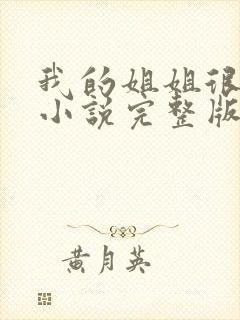 我的姐姐很
小说完整版
黄月英